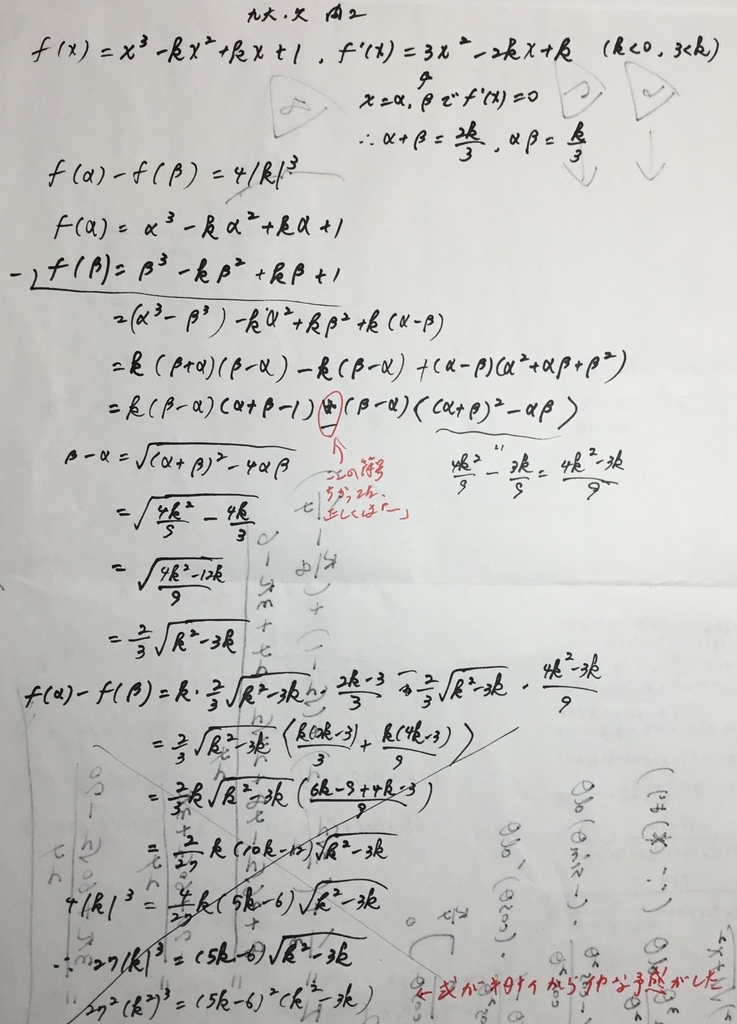 九大・文 問2
f(x)=x³-kx²+kx+1, f'(x)=3x²-2kx+k (k<0, 3<k)
x=α, βで f'(x)=0
∴ α+β=2k/3, αβ=k/3
f(α)-f(β)=4|k|³
f(α)=α³-kα²+kα+1
-) f(β)=β³-kβ²+kβ+1
=(α³-β³)-kα²+kβ²+k(α-β)
=k(β+α)(β-α)-k(β-α)+(α-β)(α²+αβ+β²)
=k(β-α)(α+β-1)+(β-α){(α+β)²-αβ}
この符号
ちがってた。
正しくは「-」
4k²/9-3k/9=4k²-3k/9
β-α=√(α+β)²-4αβ
=√4k²/9-4k/3
=√4k²-12k/9
=2/3√k²-3k
f(α)-f(β)=k・2/3√k²-3k・2k-3/3+2/3√k²-3k・4k²-3k/9
=2/3√k²-3k{k(2k-3)/3+k(4k-3)/9}
=2/3k√k²-3k(6k-9+4k-3/9)
=2/27k(10k-12)√k²-3k
4|k|³=4/27k(5k-6)√k²-3k
∴ 27|k|³=(5k-6)√k²-3k
27²(k²)³=(5k-6)²(k²-3k)